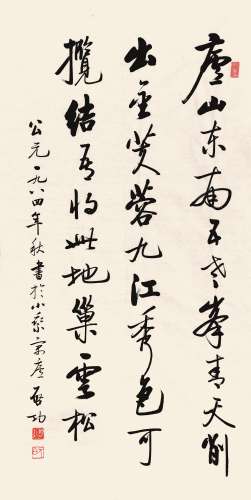 庐山东南五老峰青天削
出金芙蓉九江秀色可
揽结吾将此地巢云松
公元一九八四年秋书于小乘客庐 启功